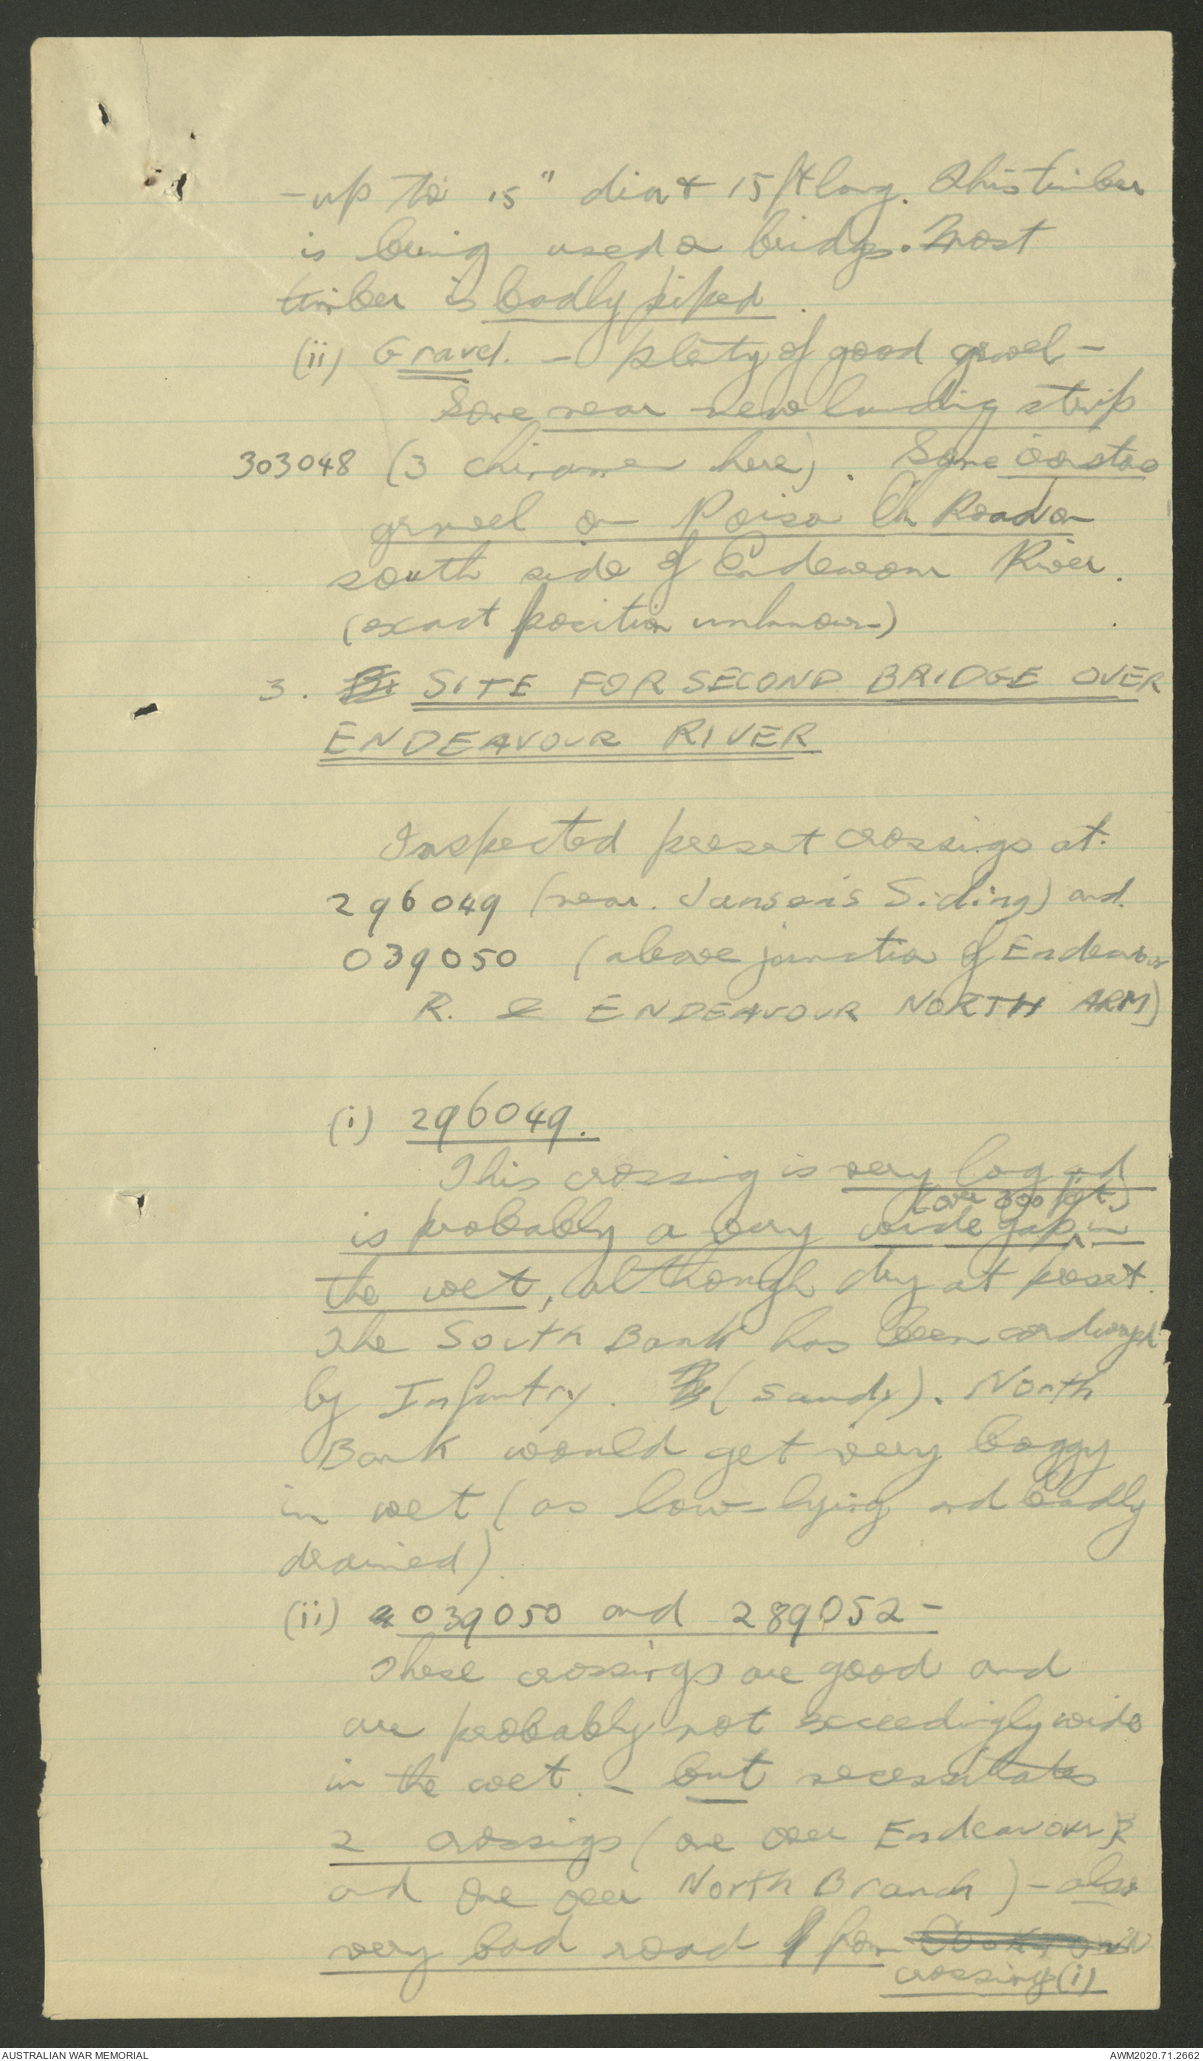 -up to 15" dia & 15 ft long. This timber
is being used on bridges. Most
timber is badly piped.
(ii) Gravel. - plenty of good gravel -
Some near new landing strip
303048 (3 here). Some
gravel on Poison Ck Road on
south side of Endeavour River.
(exact position unknown)
3. SITE FOR SECOND BRIDGE OVER
ENDEAVOUR RIVER
Inspected present crossings at.
296049 (near. Jansen's Siding) and.
039050 (above junction of Endeavour
R. & ENDEAVOUR NORTH ARM)
(i) 296049.
This crossing is very long and
(over 300 feet.)
is probably a very wide gap in
the wet, although dry at present.
The South Bank has been corduroyed
by Infantry. (sandy). North
Bank would get very boggy
in wet (as low-lying and badly
drained)
(ii) 039050 and 289052 -
These crossings are good and
are probably not exceedingly wide
in the wet. - but necessitates
2 crossings (one over Endeavour R
and one over North Branch) - also
very bad road from Cooktown
crossing (i)
AUSTRALIAN WAR MEMORIAL
AWM2020.71.2662